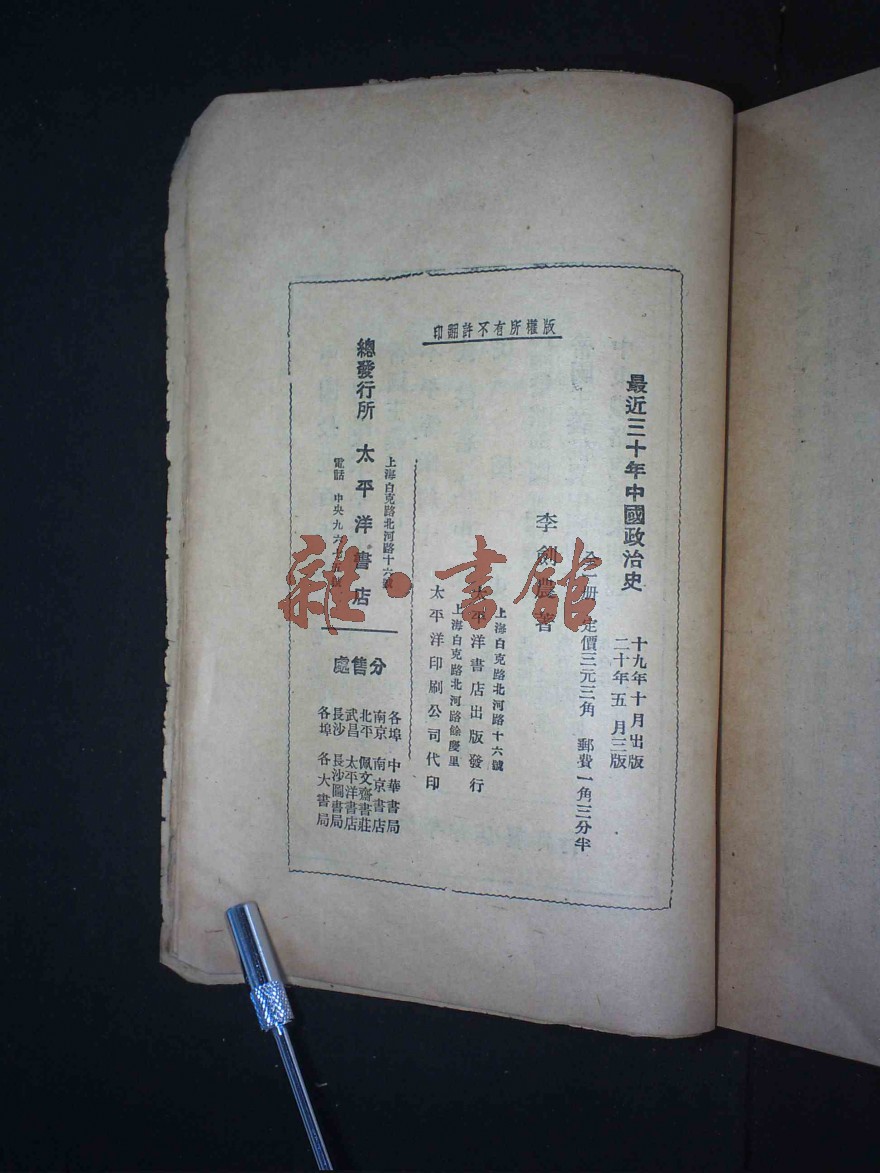 版權所有不許翻印
最近三十年中國政治史
十九年十月出版
二十年五月三版
全一册 定價三元三角 郵費一角三分半
李劍農著
上海白克路北河路十六號
太平洋書店出版發行
上海白克路北河路餘慶里
太平洋印刷公司代印
總發行所 太平洋書店
上海白克路北河路十六號
電話 中央九六七五號
分售處
各埠 中華書局
南京 南京書店
北平 佩文齋書莊
武昌 太平洋書店
長沙 長沙圖書局
各埠 各大書局
雜·書館